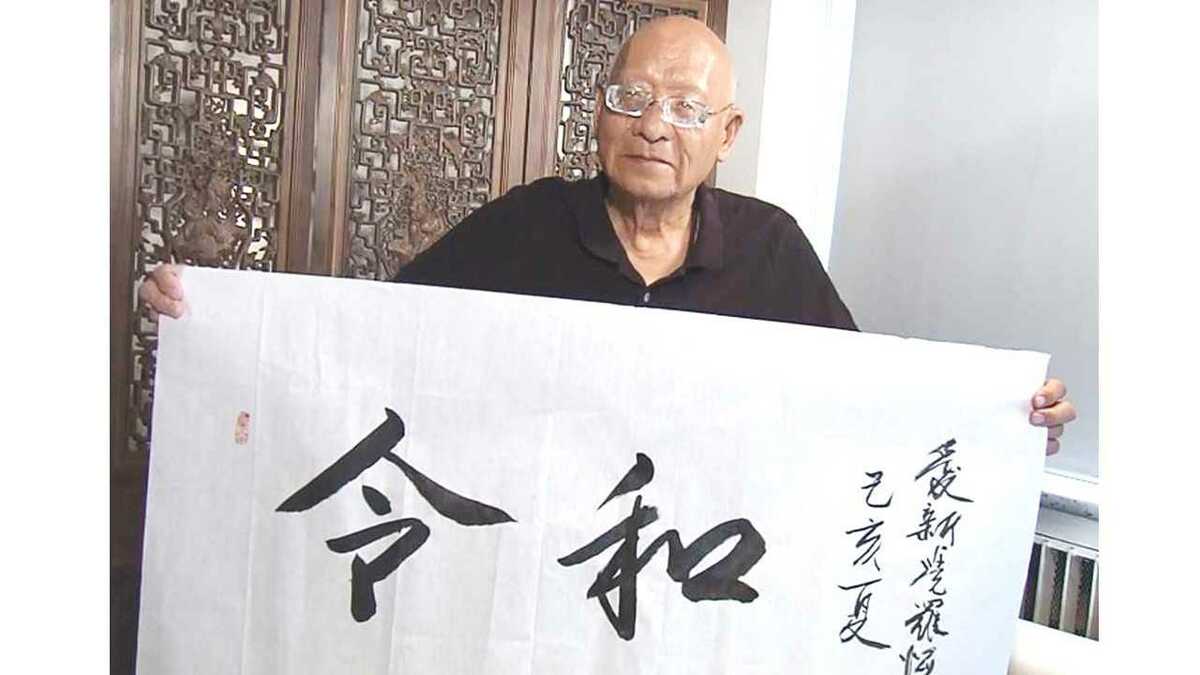 令和
己亥夏
愛新覺羅